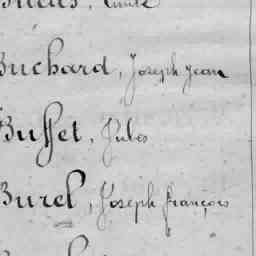 Buchard, Joseph Jean
Buffet, Jules
Burel, Joseph françois